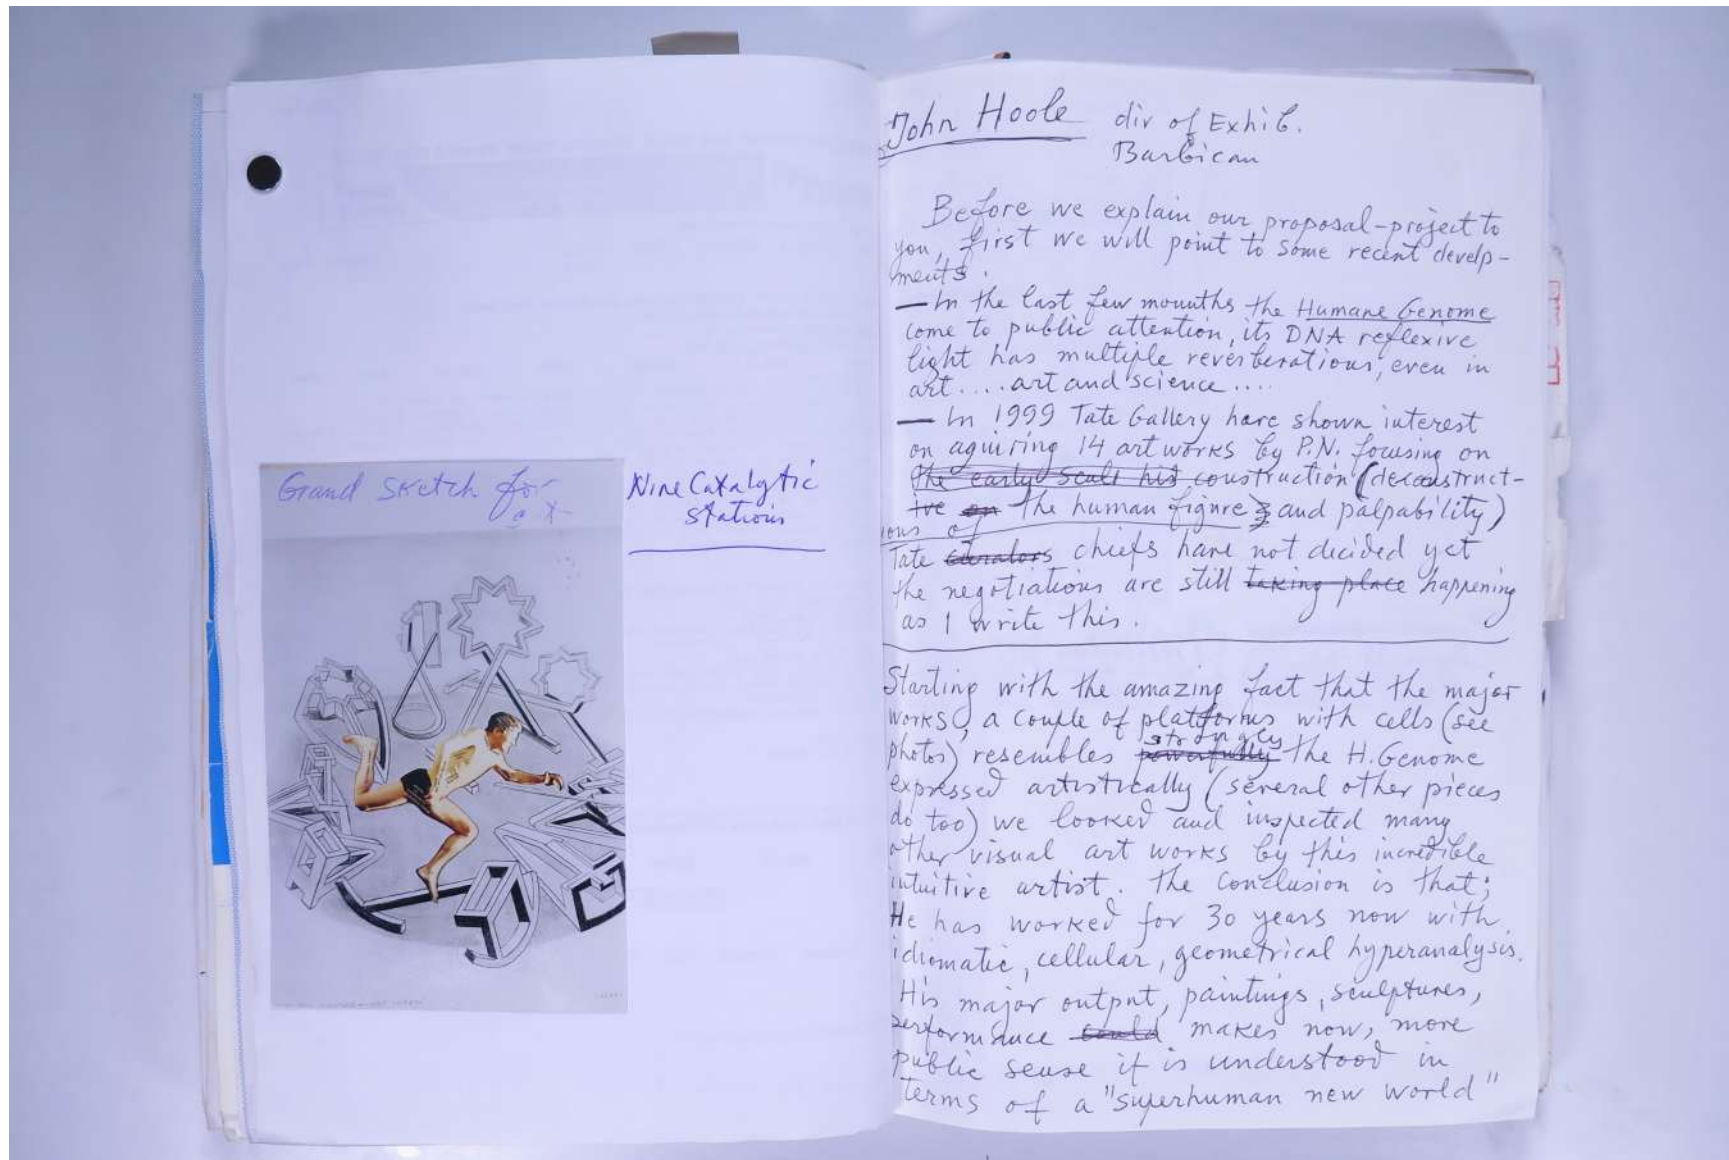 Grand sketch for
a
Nine Catalytic
stations
John Hoole div of Exhib.
Barbican
Before we explain our proposal-project to
you, first we will point to some recent develp-
ments.
— In the last few mounths the Humane Genome
come to public attention, its DNA reflexive
light has multiple reverberations, even in
art.... art and science....
— In 1999 Tate Gallery have shown interest
on aquiring 14 art works by P.N. focusing on
the early his construction (deconstruct-
ive on the human figure and palpability)
ions of
Tate curators chiefs have not decided yet
the negotiations are still taking place happening
as I write this.
Starting with the amazing fact that the major
works, a couple of platforms with cells (see
strongly
photos) resembles powerfully the H. Genome
expressed artistically (several other pieces
do too) we looked and inspected many
other visual art works by this incredible
intuitive artist. The conclusion is that;
He has worked for 30 years now with
idiomatic, cellular, geometrical hyperanalysis.
His major output, paintings, sculptures,
performance could makes now, more
public sense if is understood in
terms of a "superhuman new world"